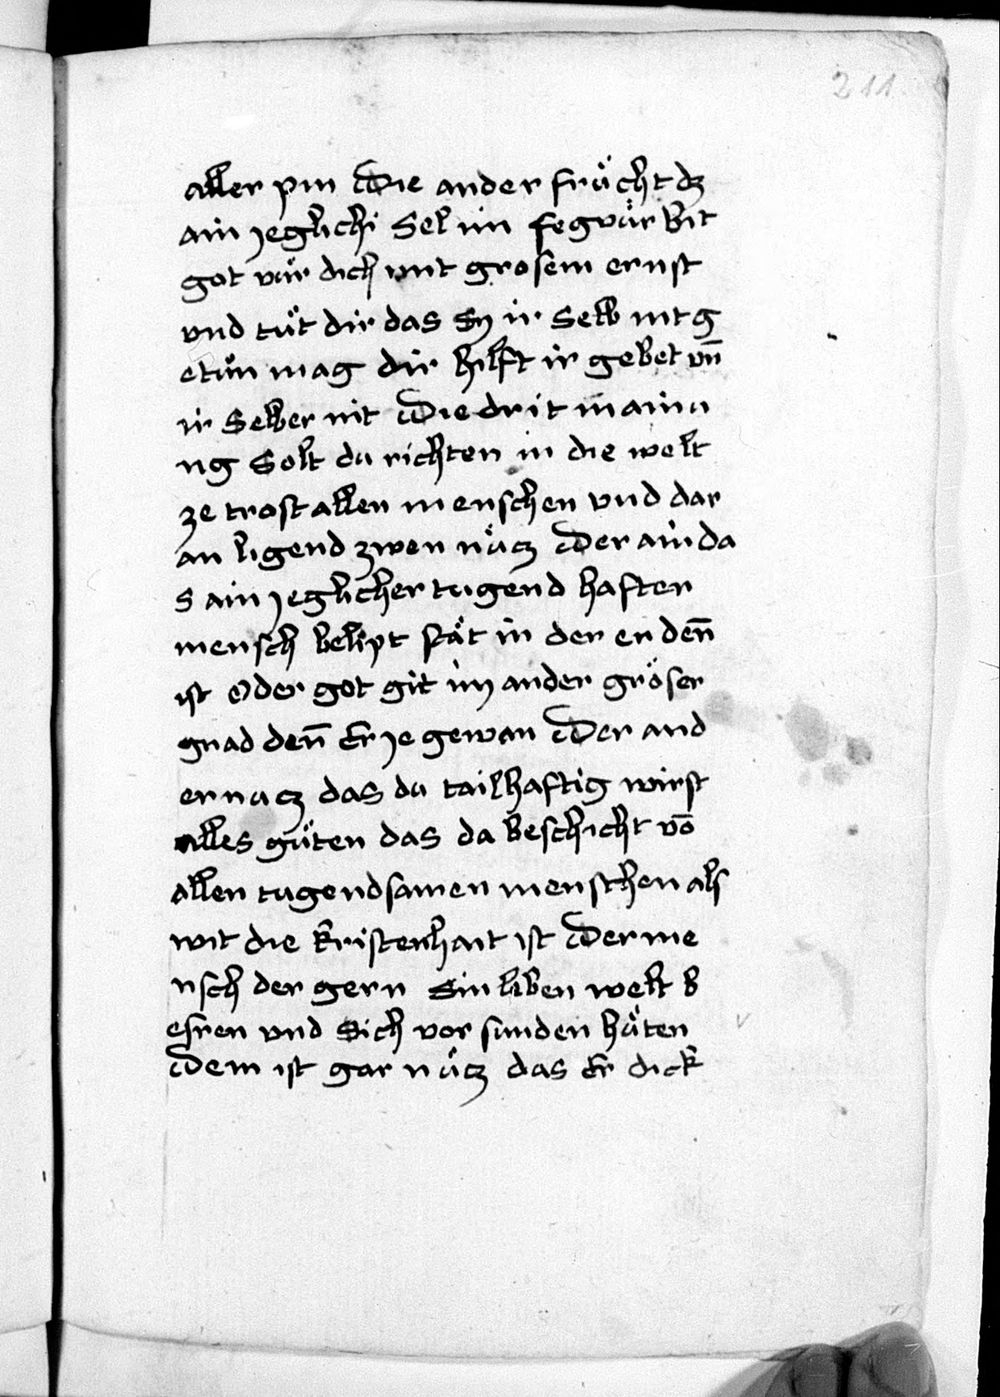 211
aller pin Die ander frücht dz
ain jeglichi Sel im fegvür bit
got vür dich mit grosem ernst
vnd tüt dir das Sy ir Selb nit g
etün mag dir hilft ir gebet vn̄
ir Selber nit Die drit mainu
ng Solt du richten in die welt
ze trost allen menschen vnd dar
an ligend zwen nücz Der ain da
s ain jeglicher tugend hafter
mensch belipt stät in der er den̄
ist Oder got git im ander gröser
gnad den̄ Er je gewan Der and
er nucz das du tailhaftig wirst
alles güten das da beschicht vō
allen tugendsamen menschen als
wit die kristenhait ist Der me
nsch der gern Sin leben welt b
esren vnd Sich vor sunden hüten
Dem ist gar nücz das Er dick